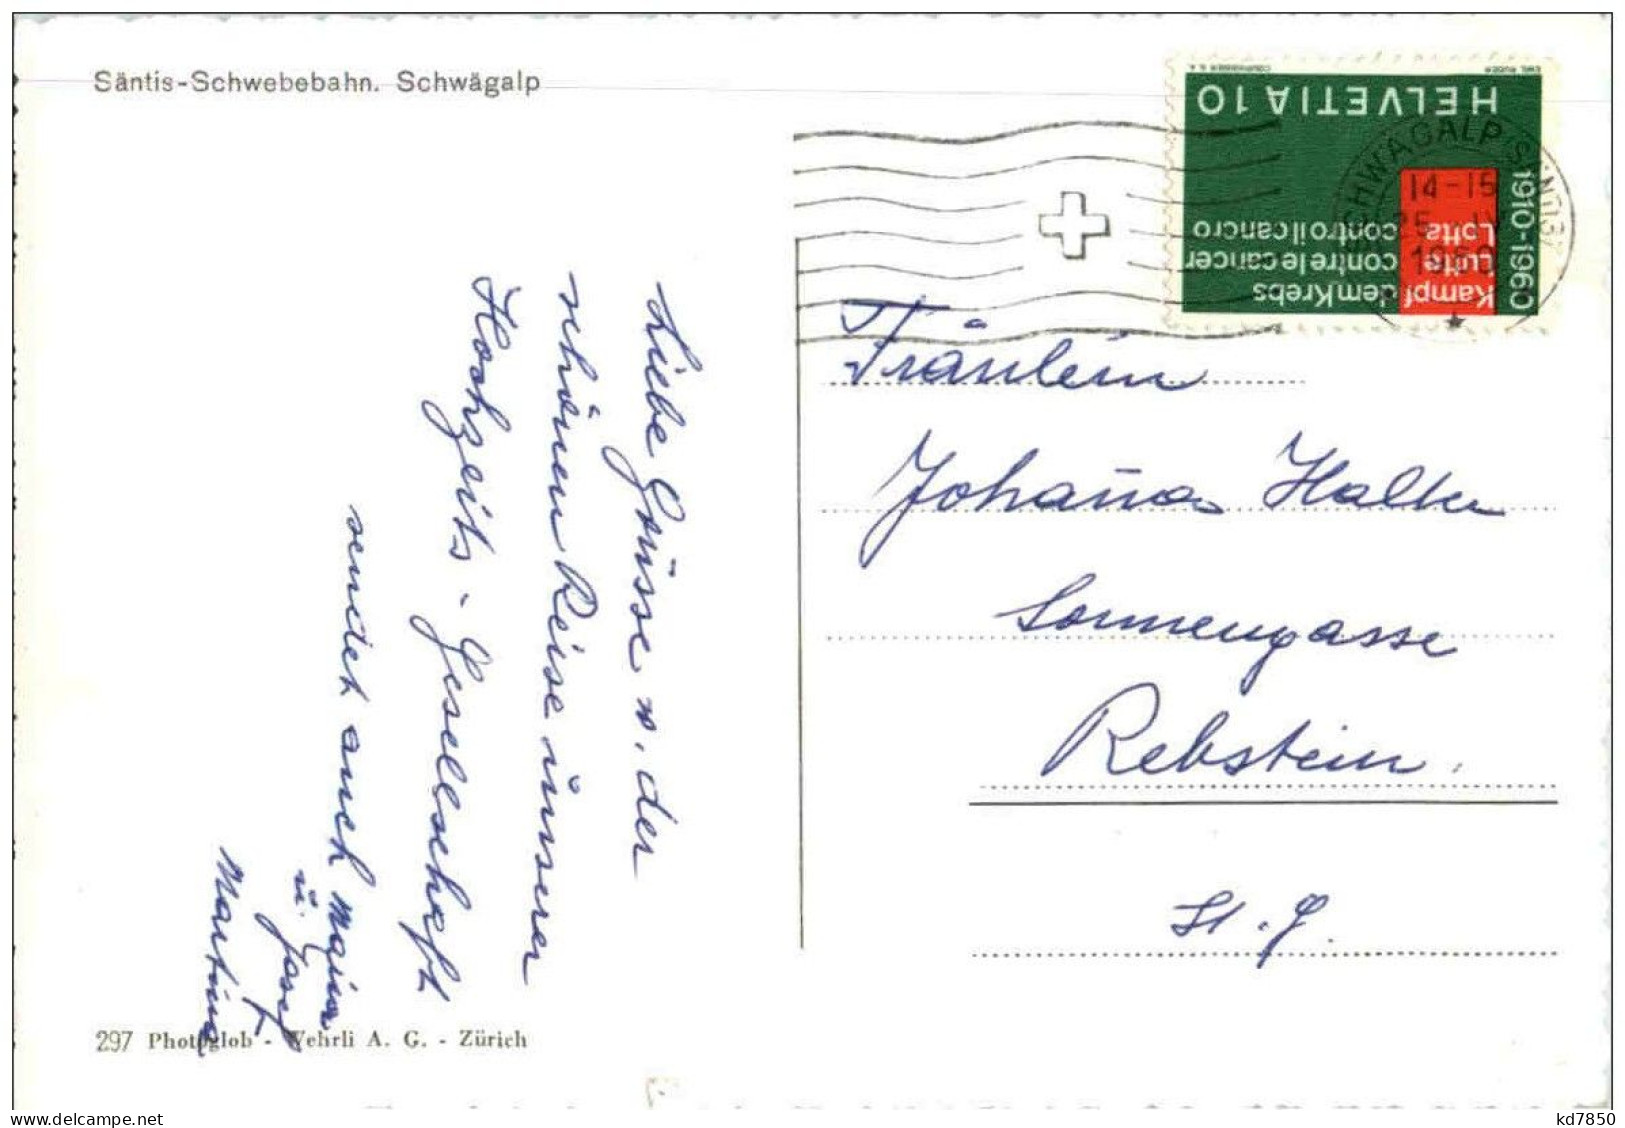 Säntis-Schwebebahn. Schwägalp
EMIL RUDER
COURVOISIER S.A.
HELVETIA 10
1910-1960
Kampf dem Krebs
Lutte contre le cancer
Lotta contro il cancro
SCHWÄGALP SÄNTIS
14-15
25. IV.
1960
Liebe Grüsse v. der
schönen Reise unserer
Hochzeits-Gesellschaft
sendet auch Maria
u. Josef
Martina
Fräulein
Johanna Halter
Sonnengasse
Rebstein.
St. G.
297 Photoglob - Wehrli A. G. - Zürich
delcampe.net
kd7850